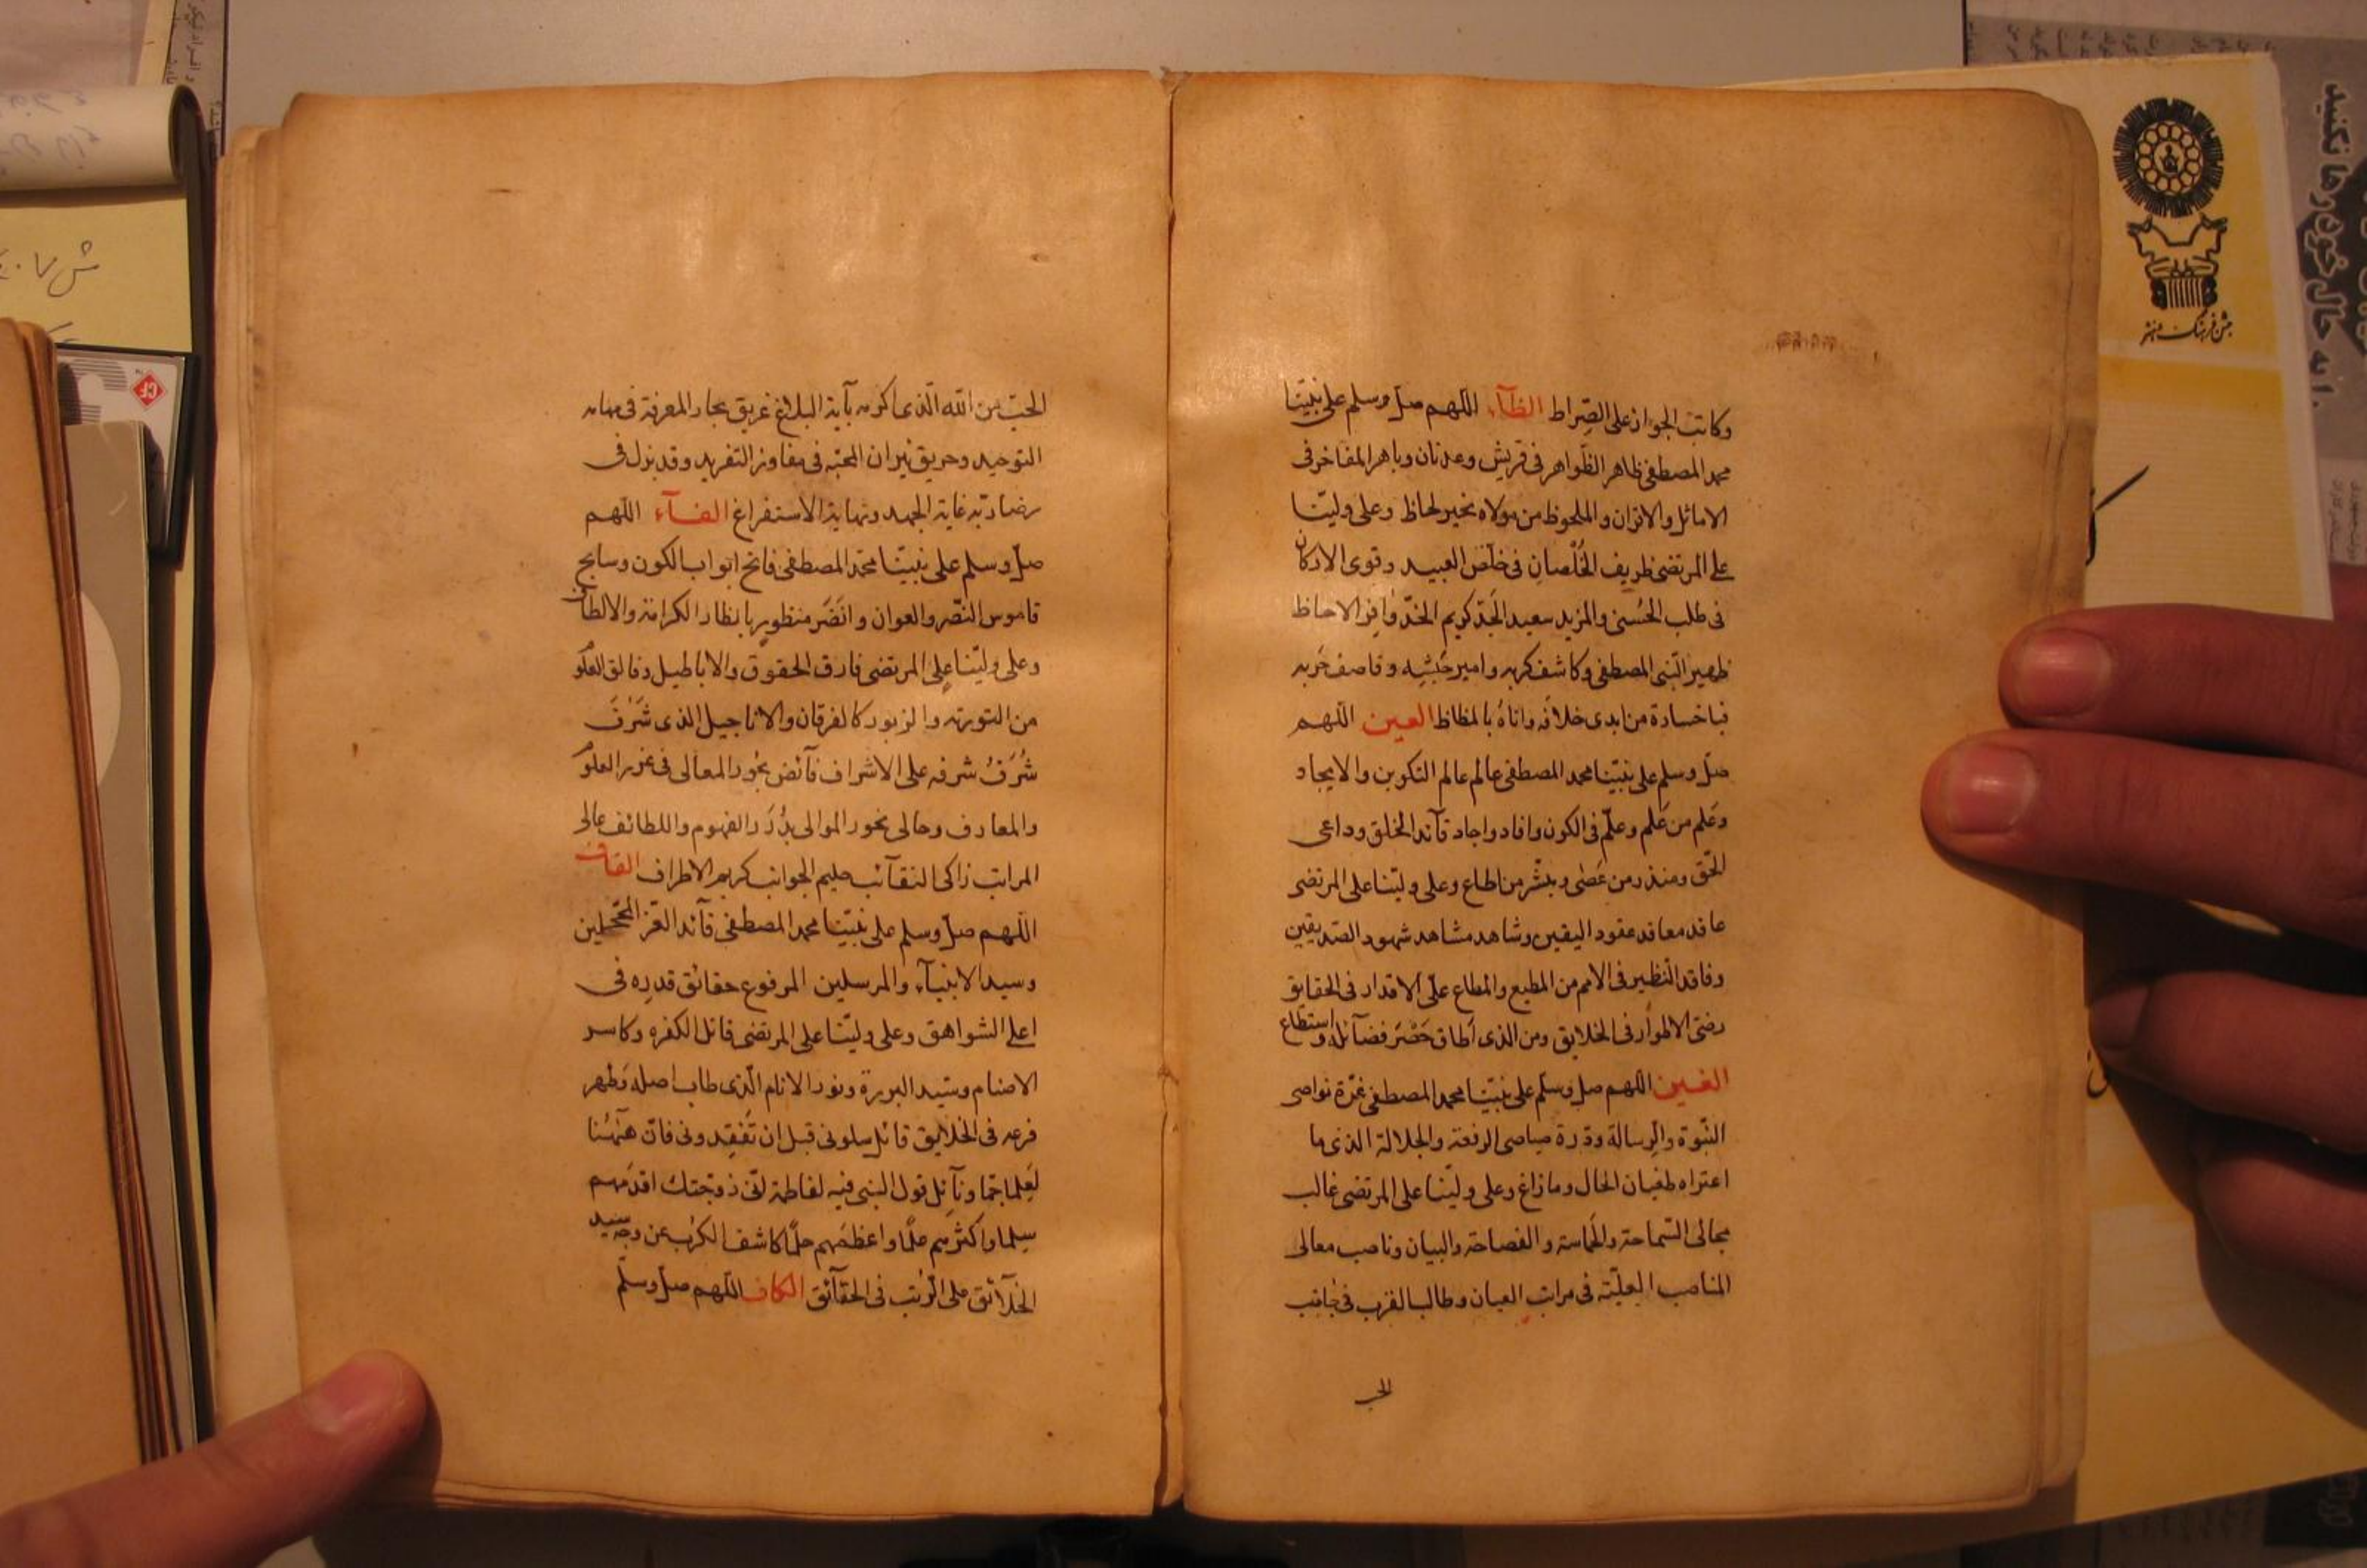 وكاتب الجواز على الصراط الظآء اللهم صل وسلم على نبيّنا
محمد المصطفى ظاهر الظواهر فى قريش وعدنان وباهر المفاخر فى
الاماثل والاقران والملحوظ من مولاه بخير لحاظ وعلى وليّنا
على المرتضى ظريف الخُلْصان فى خلّص العبيد وقوى الاركان
فى طلب الحُسنى والمزيد سعيد الجَدّ كريم الخدّ وافر الاحاظ
ظهير النّبى المصطفى وكاشف كربه وامير جَيْشِه وقاصف حَرْبه
فياخسارة من ابدى خلافه واتاهُ بالمظاظ العين اللهم
صلّ وسلم على نبيّنا محمد المصطفى عالم عالم التكوين والايجاد
وعَلم من عَلم وعلّم فى الكون وافاد واجاد قآئد الخلق وداعى
الحّق ومنذر من عَصٰى ومبشّر من اطاع وعلى وليّنا على المرتضى
عاقد معاقد عقود اليقين وشاهد مشاهد شهود الصّديقين
وفاقد النّظير فى الامم من المطيع والمطاع علىّ الاقدار فى الحقايق
رضىّ الاطوار فى الخلايق ومن الذى اَطاق حَصْرَ فضآئله واستطاع
الغين اللهم صل وسلّم على نبيّنا محمد المصطفى غرّة نواصى
النّبوة والرسالة ودرة صياصى الرفعة والجلالة الذى ما
اعتراه طغيان الخال وما زاغ وعلى وليّنا على المرتضى غالب
مجالى السّماحة والحَماسة والفصاحة والبيان وناصب معالى
المناصب العليّة فى مراتب العيان وطالب القرب فى جانب
الحب
الحبّ من الله الّذى اكرمه بآية البلاغ غريق بحار المعرفة فى مهامه
التوحيد وحريق نيران المحبّه فى مفاوز التفريد وقد بذل فى
رضا ربّه غاية الجهد ونهاية الاستفراغ الفآء اللهم
صلّ وسلم على نبيّنا محمّد المصطفى فاتح ابواب الكون وسابح
قاموس النصّر والعوان وانضَر منظورٍ بانظار الكرامة والالطاف
وعلى وليّنا على المرتضى فارق الحقوق والاباطيل وفالق العلوم
من التورية والزبور كالفرقان والاناجيل الذى شَرُفَ
شُرَفُ شرفه على الاشراف فآئض بحُور المعالى فى غرر العلوم
والمعارف وحالى نحور الموالى بدُرَر الفهوم واللطائف عالى
المراتب زاكى النقآئب حليم الجوانب كريم الاطراف القاف
اللهم صلّ وسلم على نبيّنا محمد المصطفى قآئد الغّر المحّجلين
وسيد الانبيآء والمرسلين المرفوع حقائق قدره فى
اعلى الشواهق وعلى وليّنا على المرتضى قاتل الكفره وكاسر
الاصنام وسيد البررة ونور الانام الّذى طاب اصله وَطهر
فرعه فى الخلايق قائل سلونى قبل ان تَفْقِدونى فانّ هٰهُنا
لَعِلما جمّا ونآئل قول النبى فيه لفاطمة انّى زوجتك اقدَمهم
سِلما واكثرهم علمًا واعظمَهم حلمًا كاشف الكرب عن وجه سيد
الخلآئق على الرّتب فى الحقآئق الكاف اللهم صلّ وسلّم
جشن فرهنگ و هنر